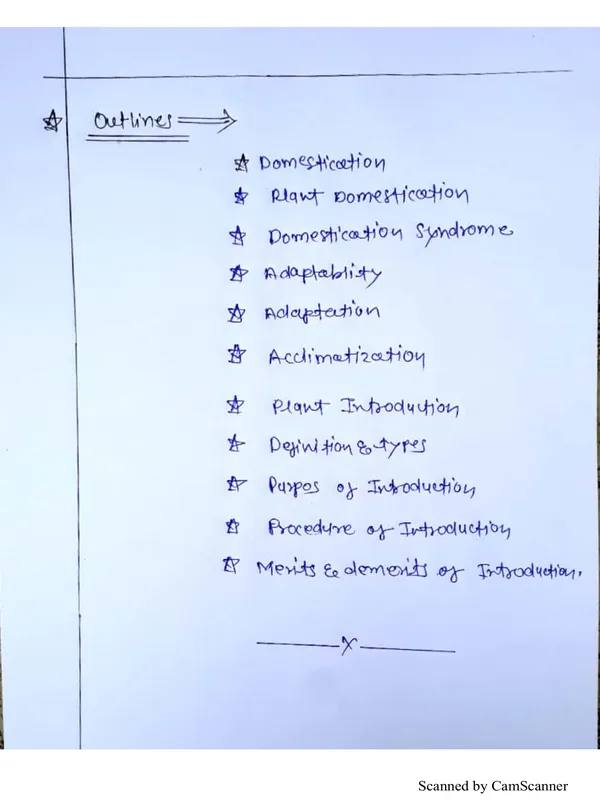 ☆ Outlines ⇒
☆ Domestication
☆ Plant Domestication
☆ Domestication Syndrome
☆ Adaptablity
☆ Adaptation
☆ Acclimatization
☆ Plant Introduction
☆ Definition & types
☆ Purpos of Introduction
☆ Procedure of Introduction
☆ Merits & demerits of Introduction.
—x—
Scanned by CamScanner